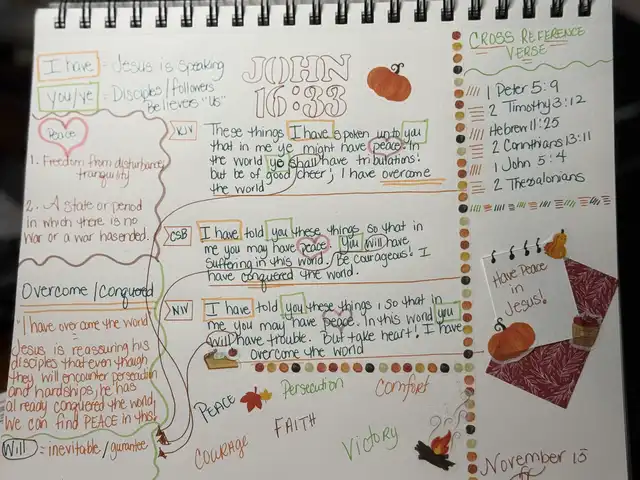 I have = Jesus is speaking
you/ye = Disciples/Followers
Believers "us"
Peace
1. Freedom from disturbance,
tranquility
2. A state or period
in which there is no
war or a war has ended.
Overcome/Conquered
"I have overcome the world
Jesus is reassuring his
disciples that even though
they will encounter persecution
and hardships, he has
already conquered the world.
We can find PEACE in this!
Will = inevitable/gurantee
JOHN
16:33
KJV
These things I have spoken unto you
that in me ye might have peace. In
the world ye shall have tribulations:
but be of good cheer; I have overcome
the world
CSB
I have told you these things so that in
me you may have peace. You will have
suffering in this world. Be courageous! I
have conquered the world.
NIV
I have told you these things, so that in
me you may have peace. In this world you
will have trouble. But take heart! I have
overcome the world
PEACE
Persecution
Comfort
COURAGE
FAITH
Victory
CROSS REFERENCE
VERSE
1 Peter 5:9
2 Timothy 3:12
Hebrew 11:25
2 Corinthians 13:11
1 John 5:4
2 Thesalonians
Have Peace
in
Jesus!
November 15